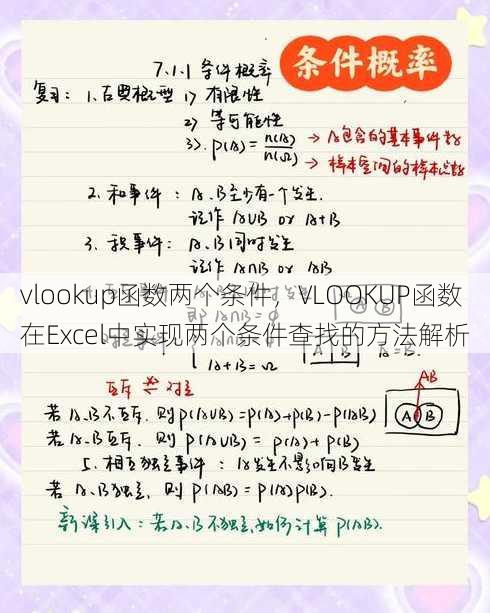 条件概率
7.1.1 条件概率
复习: 1.古典概型 1) 有限性
2) 等可能性
3). P(A)= n(A)/n(Ω) → A包含的基本事件数
→ 样本空间的样本点数
2. 和事件: A.B至少有一个发生.
记作 A∪B or A+B
3. 积事件: A.B同时发生
记作 A∩B or AB
vlookup函数两个条件，VLOOKUP函数
在Excel中实现两个条件查找的方法解析
即 A∩B = ∅
A+B = Ω
互斥 ⇄ 对立
AB
A B
若 A.B不互斥. 则 P(A∪B)=P(A)+P(B)-P(A∩B)
若 A.B互斥. 则 P(A∪B) = P(A)+P(B)
5. 相互独立事件: A发生不影响B发生
若 A.B独立, 则 P(A∩B) = P(A)P(B).
新课引入: 若A.B不独立,如何计算 P(AB).